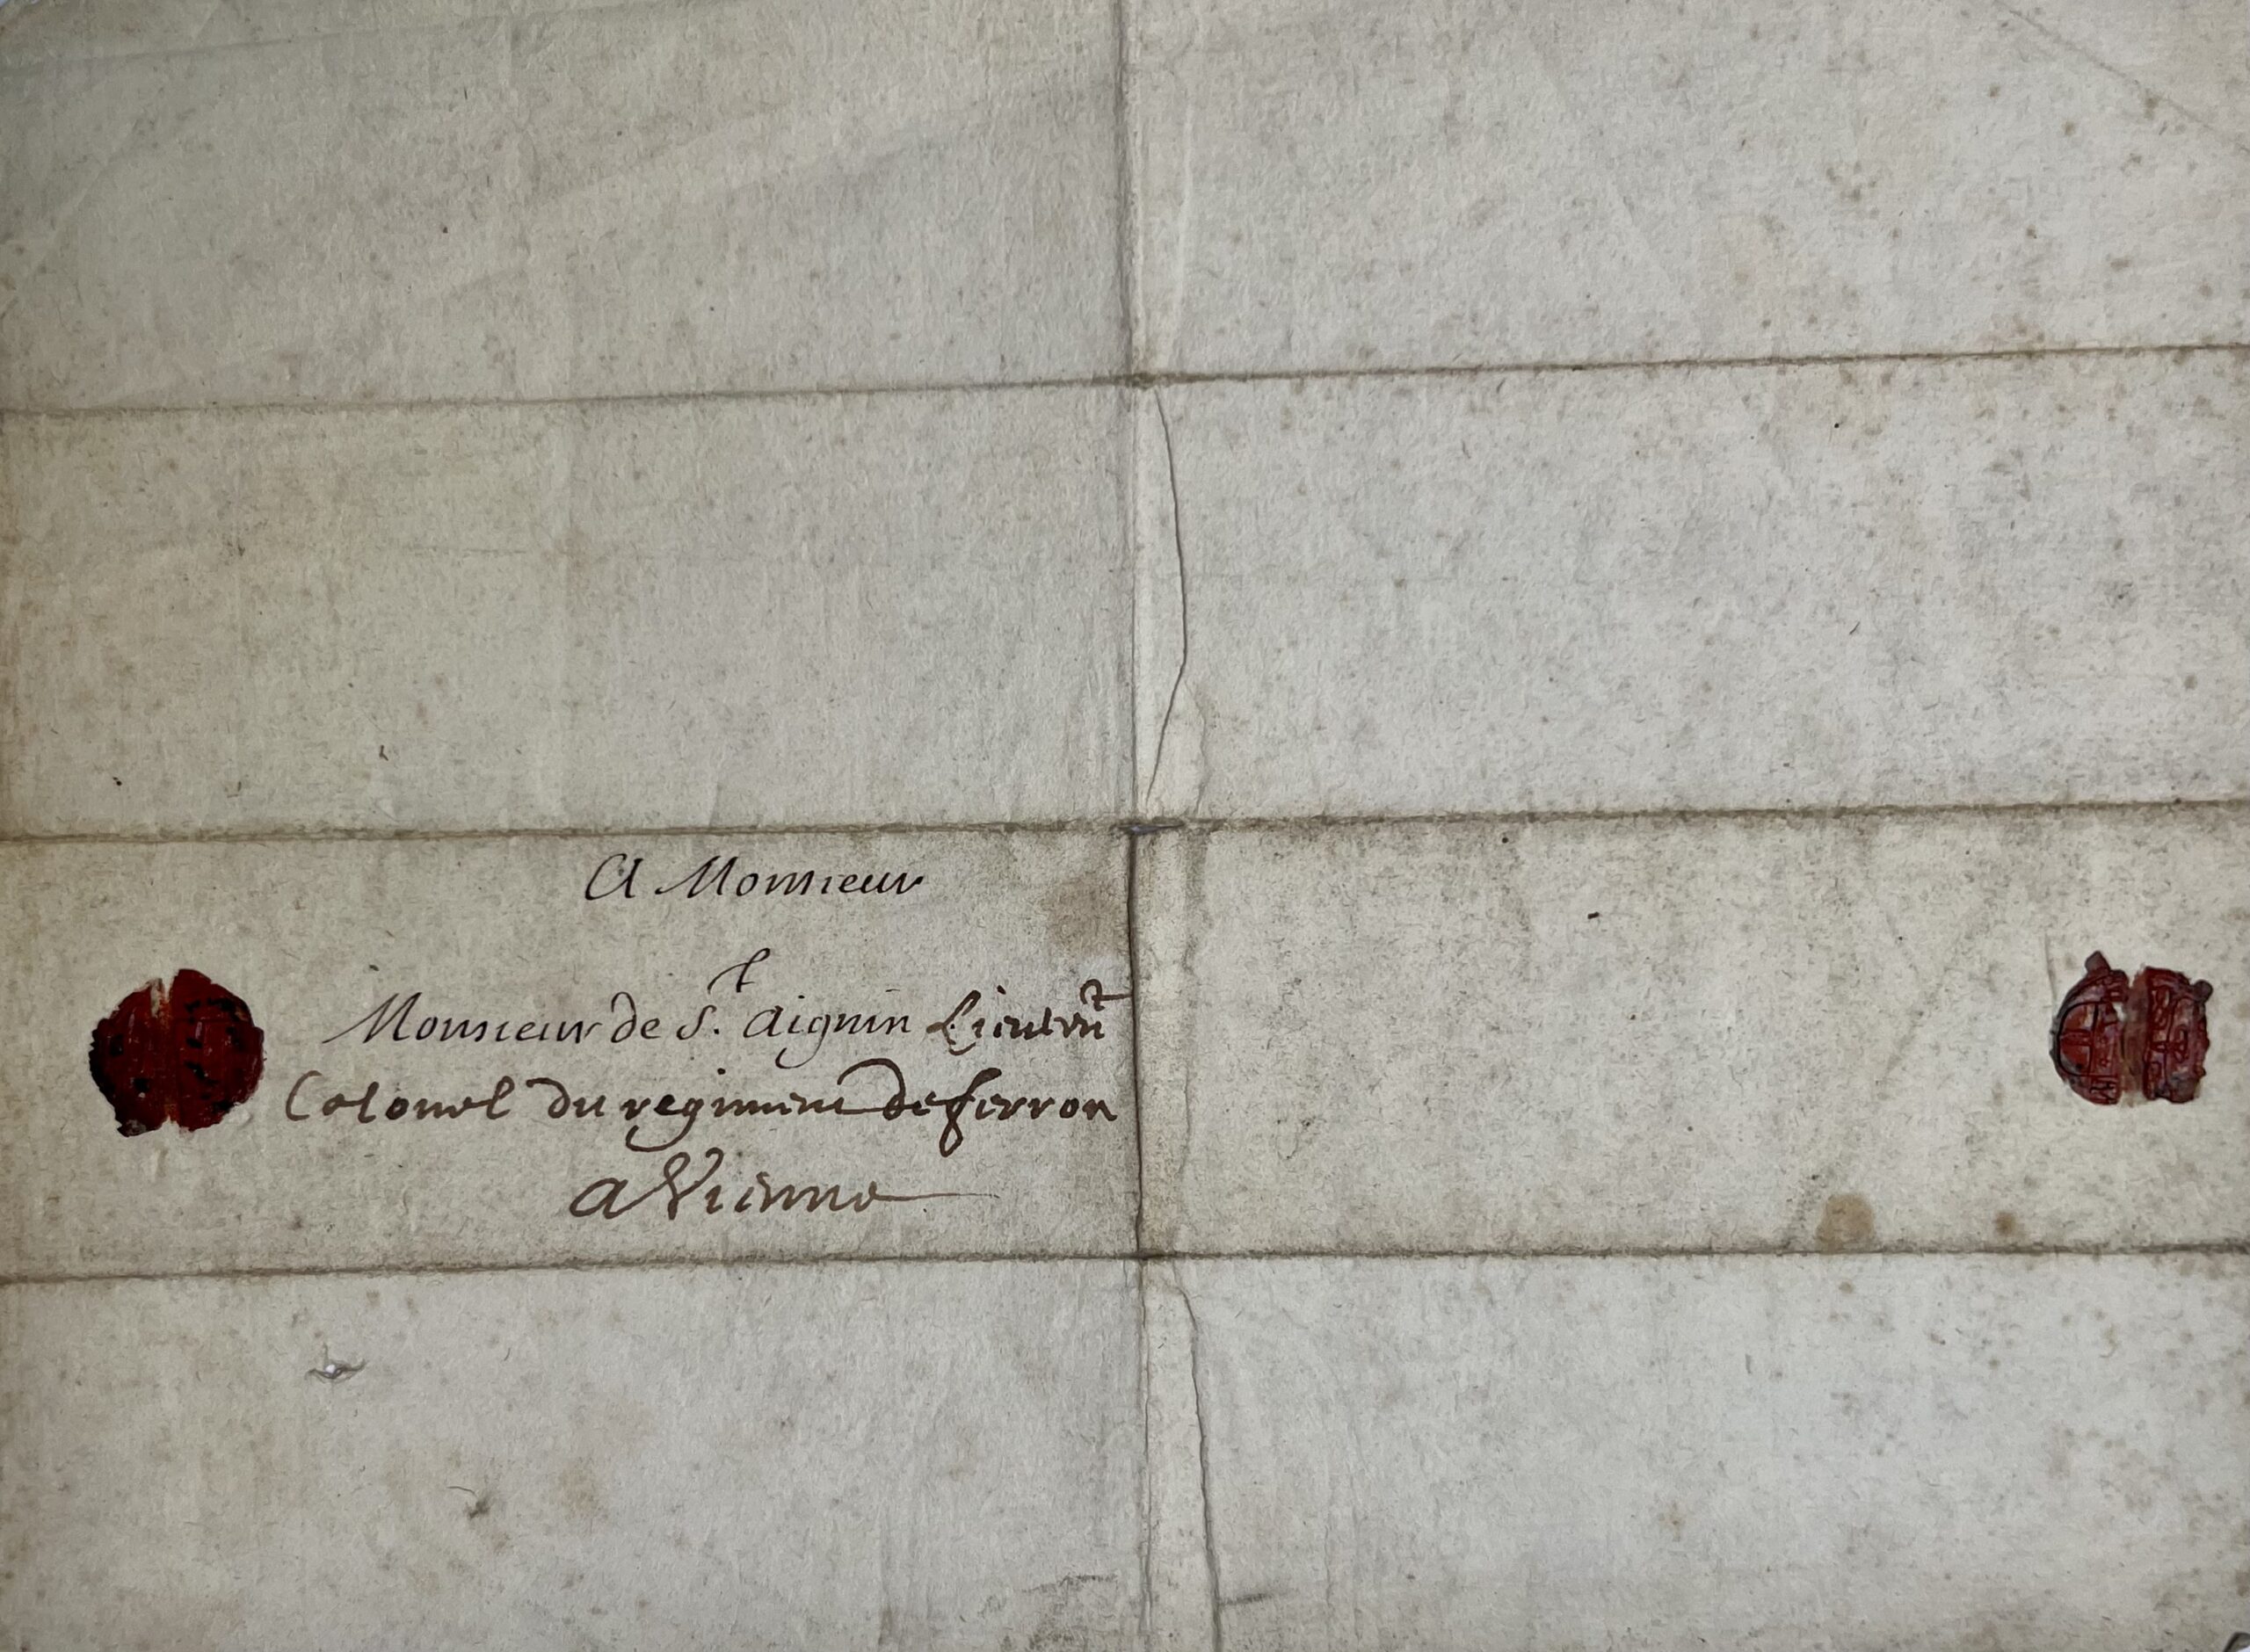 A Monsieur
Monsieur de S.t Aignin Lieutent
Colonel du regiment de ferron
a Vienne